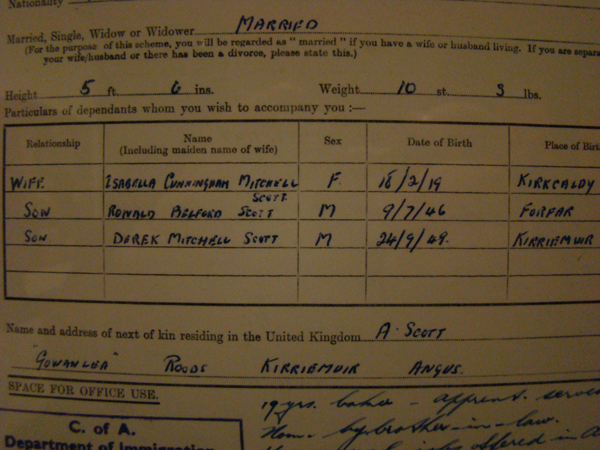 Nationality
Married, Single, Widow or Widower MARRIED
(For the purpose of this scheme, you will be regarded as "married" if you have a wife or husband living. If you are separ
your wife/husband or there has been a divorce, please state this.)
Height 5 ft. 6 ins. Weight 10 st. 3 lbs.
Particulars of dependants whom you wish to accompany you :—
Relationship Name (Including maiden name of wife) Sex Date of Birth Place of Birt
WIFE ISABELLA CUNNINGHAM MITCHELL SCOTT. F. 18/2/19 KIRKCALDY
SON RONALD BELFORD SCOTT M 9/7/46 FORFAR
SON DEREK MITCHELL SCOTT M 24/9/49. KIRRIEMUIR
Name and address of next of kin residing in the United Kingdom A. SCOTT
"GOWANLEA" ROODS KIRRIEMUIR ANGUS.
SPACE FOR OFFICE USE.
19 yrs. baker – apprent. served
Home by brother-in-law.
offered in A
C. of A.
Department of Immigration